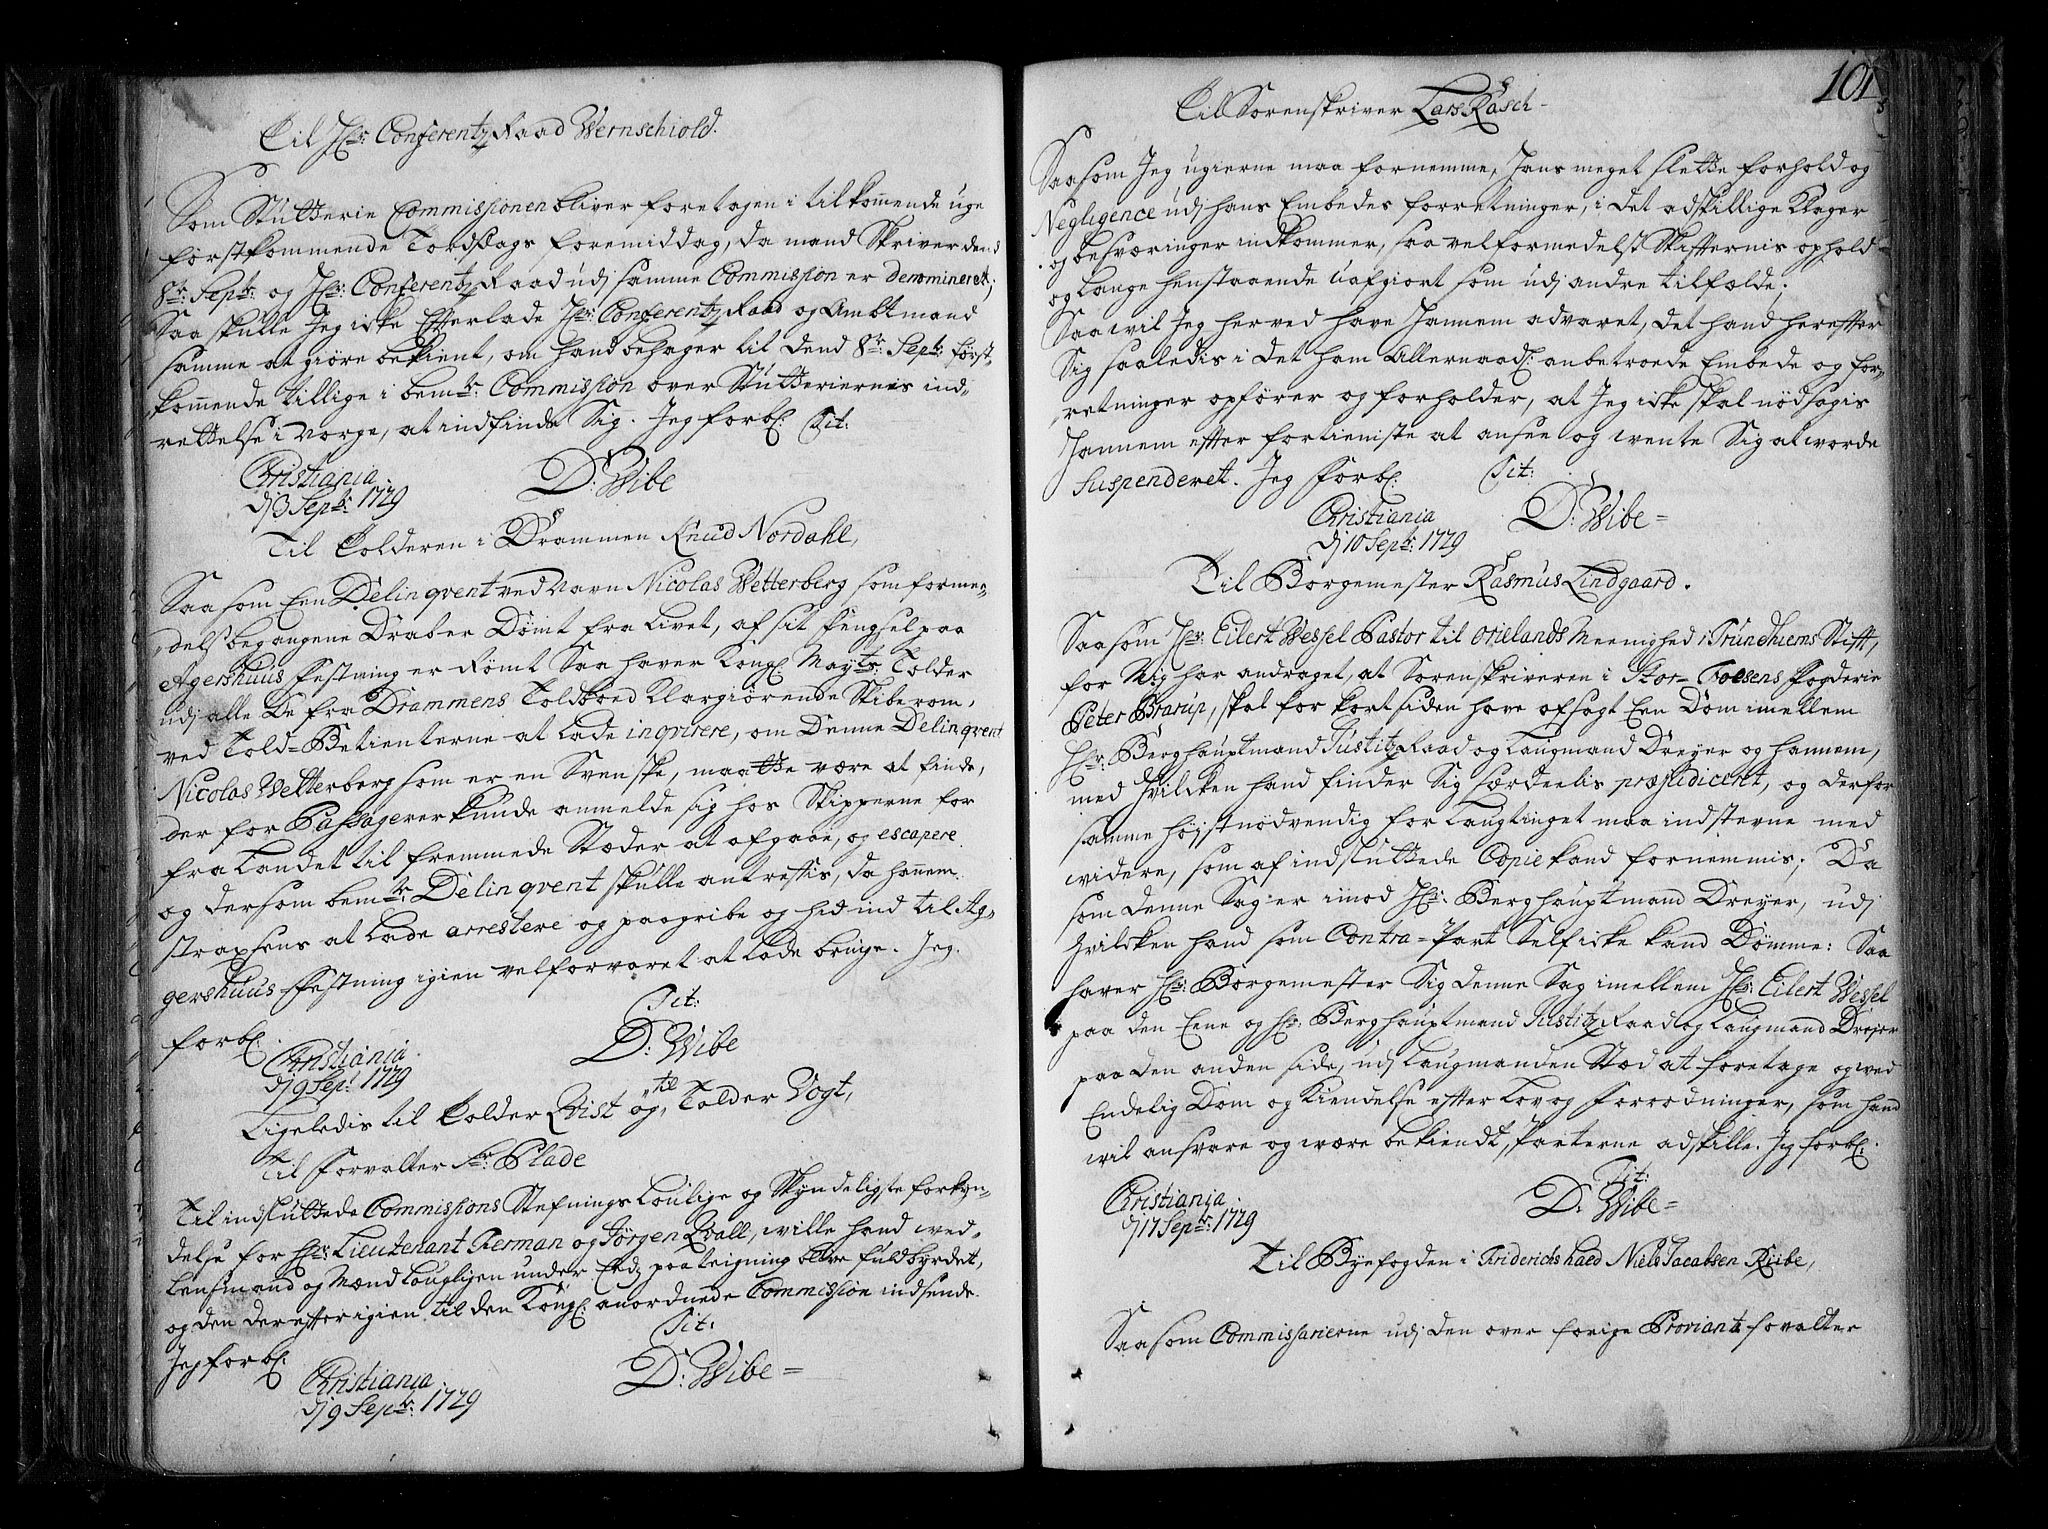 Til Hr: Conferentz Raad Wernschiold.
Som Stutterie Commissionen bliver foretagen i tilkommende uge
førstkommende Torsdags formiddag, da mand skriver dend
8de: Septr: og Hr: Conferentz Raad udj samme Commission er denomineret;
Saa skulle Jeg icke Efterlade Hr: Conferentz Raad og Ambtmand
samme at giøre bekient, om hand behager til dend 8de: Septr: først,,
kommende tillige i bemte: Commission over Stutteriernis ind,,
rettelse i Norge, at indfinde Sig. Jeg forbl: Tit:
Christiania
dj 3 Septr: 1729
D: Wibe
Til Tolderen i Drammen Knud Nordahl,
Saasom Een Delinqvent ved Navn Nicolas Wetterberg som forme,,
delst begangene Draber Dømt fra Livet, af sit fengsel paa
Agershuus festning er Rømt Saa haver Kongl Mayts: Tolder
udj alle De fra Drammens Toldboed Klargiørende Skiberom,
ved Told-Betienterne at lade inqvirere, om Denne Delinqvent
Nicolas Wetterberg som er en Svenske, maatte være at finde,
der for Passagerer kunde anmelde sig hos Skipperne for
fra Landet til fremmede Stæder at afgaae, og escapere
og dersom bemte: Delinqvent skulle antreffis, da hannem
straxsens at lade arrestere og paagribe og hid ind til Ag,,
gershuus festning igien velforvaret at lade bringe. Jeg
forbl:
Tit:
Christiania
dj 9 Sept: 1729
D: Wibe
Ligeledis til Tolder Rist og til Tolder Vogt,
Til forvalter Sr: Plade
Til indsluttede Commissions Stefnings Loulige og Skyndeligste forkyn,,
delse for Hr: Lieutenant Rerman og Jørgen Qvall, wille hand wed
Lensmand og Mænd Lougligen under Eedz paateigning blive fuldbyrdet,
og den derefter igien til den Kongl: anordnede Commission indsende.
Jeg forbl:
Tit:
Christiania
dj 9 Septr: 1729
D: Wibe=
101
Til Sorenskriver Lars Rasch-
Saasom Jeg ugierne maa fornemme, Hans meget slette forhold og
Negligence udj hans Embedes forretninger, i det adskillige Klager
og besværinger indkommer, saa vel formedelst Skifternis ophold
og lange henstaaende uafgiort som udj andre tilfælde;
Saa wil Jeg herved have Hannem advaret, det hand herefter
Sig saaledis i det ham Allernaadl: anbetroede Embede og for,,
retninger opfører og forholder, at Jeg icke skal nødsagis
Hannem efter fortieniste at ansee og wente Sig at worde
Suspenderet. Jeg forbl: Tit:
Christiania
dj 10 Septr: 1729
D: Wibe=
Til Borgemester Rasmus Lindgaard.
Saasom Hr: Eilert Wessel Pastor til Ørlands Meenighed i Trundhiems Stift,
for Mig har andraget, at Sorenskriveren i Stor-Foesens fogderie
Peter Brarup, skal for kort siden have afsagt Een Dom imellem
Hr: Berghauptmand Justitz Raad og Laugmand Dreyer og hannem,
med hvilcken hand finder Sig særdeelis præjudiceret, og derfor
samme højstnødvendig for Laugtinget maa indstevne med
widere, som af indsluttede Copie kand fornemmis; Da
som denne Sag er imod Hr: Berghauptmand Dreyer, udj
Hvilcken hand som Contra-Part Self icke kand Dømme: Saa
haver Hr: Borgemester Sig denne Sag imellem Hr: Eilert Wessel
paa den Eene og Hr: Berghauptmand Justitz Raad og Laugmand Dreyer
paa den anden side, udj Laugmandens Sted at foretage og wed
Endelig Dom og Kiendelse efter Lov og Forordninger, som hand
wil ansvare og wære bekiendt, Parterne adskille. Jeg forbl:
Tit:
Christiania
dj 17 Septr: 1729
D: Wibe=
Til Byefogden i Friderichshald Niels Jacobsen Riibe,
Saasom Commissarierne udj den over forige Proviant forvalter